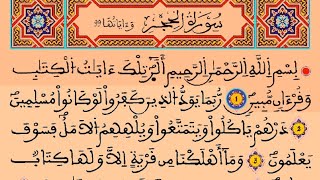 سورة الحجر وءاياتها 99
بِسْمِ اللَّهِ الرَّحْمَٰنِ الرَّحِيمِ أَلَٓر تِلْكَ ءَايَٰتُ الْكِتَٰبِ
وَقُرْءَانٍ مُّبِينٍ 1 رُّبَمَا يَوَدُّ الذِينَ كَفَرُواْ لَوْ كَانُواْ مُسْلِمِينَ
2 ذَرْهُمْ يَاكُلُواْ وَيَتَمَتَّعُواْ وَيُلْهِهِمُ الْأَمَلُ فَسَوْفَ
يَعْلَمُونَ 3 وَمَا أَهْلَكْنَا مِن قَرْيَةٍ إِلَّا وَلَهَا كِتَابٌ